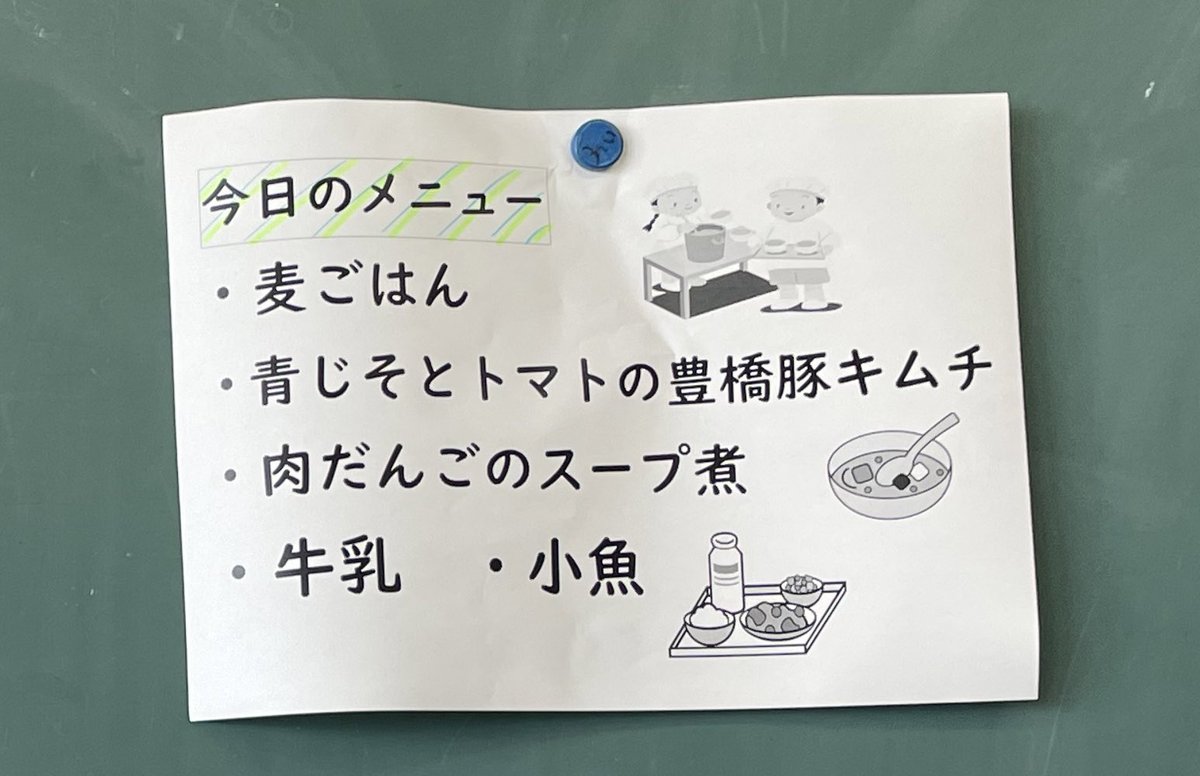 今日のメニュー
・麦ごはん
・青じそとトマトの豊橋豚キムチ
・肉だんごのスープ煮
・牛乳　・小魚